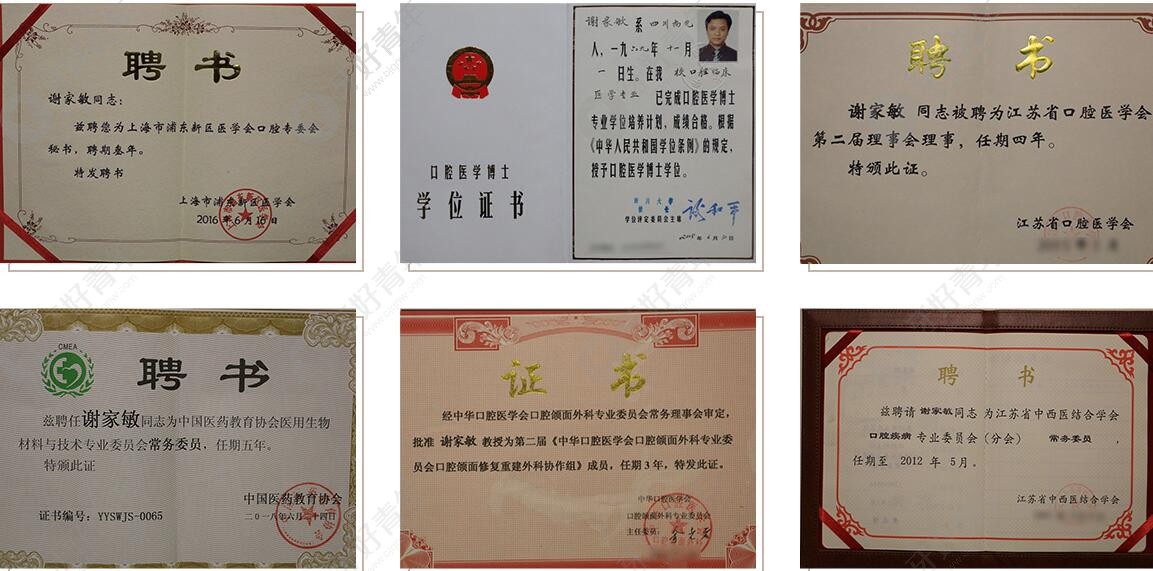 聘书
谢家敏同志：
兹聘您为上海市浦东新区医学会口腔专委会
秘书，聘期叁年。
特发聘书
上海市浦东新区医学会
2016年6月16日
口腔医学博士
学位证书
谢家敏 系 四川南充
人，一九六九年 十一月
一 日生。在我 校口腔临床
医学专业 已完成口腔医学博士
专业学位培养计划，成绩合格。根据
《中华人民共和国学位条例》的规定，
授予口腔医学博士学位。
四川大学
学位评定委员会主席
聘书
谢家敏 同志被聘为江苏省口腔医学会
第二届理事会理事，任期四年。
特颁此证。
江苏省口腔医学会
CMEA
聘书
兹聘任谢家敏同志为中国医药教育协会医用生物
材料与技术专业委员会常务委员，任期五年。
特颁此证
中国医药教育协会
证书编号：YYSWJS-0065
二〇一八年六月二十四日
证书
经中华口腔医学会口腔颌面外科专业委员会常务理事会审定，
批准 谢家敏 教授为第二届《中华口腔医学会口腔颌面外科专业委
员会口腔颌面修复重建外科协作组》成员，任期3年，特发此证。
中华口腔医学会
口腔颌面外科专业委员会
主任委员：
聘书
兹聘请 谢家敏同志 为江苏省中西医结合学会
口腔疾病 专业委员会（分会） 常务委员 ，
任期至 2012 年 5月。
江苏省中西医结合学会